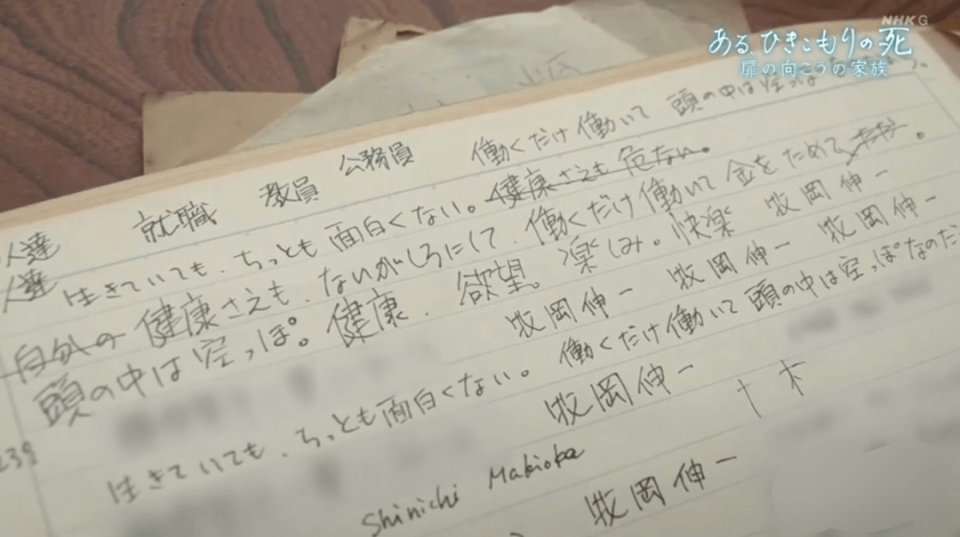 NHK G
ある、ひきこもりの死
扉の向こうの家族
人達 就職 教員 公務員 働くだけ働いて 頭の中は空っぽ
人達 生きていても、ちっとも面白くない。健康さえも危ない。
自分の健康さえも、ないがしろにして、働くだけ働いて金をためて
頭の中は空っぽ。健康、欲望。楽しみ。快楽 牧岡伸一
牧岡伸一 牧岡伸一 牧岡伸一
生きていても、ちっとも面白くない。働くだけ働いて頭の中は空っぽなのだ
牧岡伸一
Shinichi Makioka
牧岡伸一